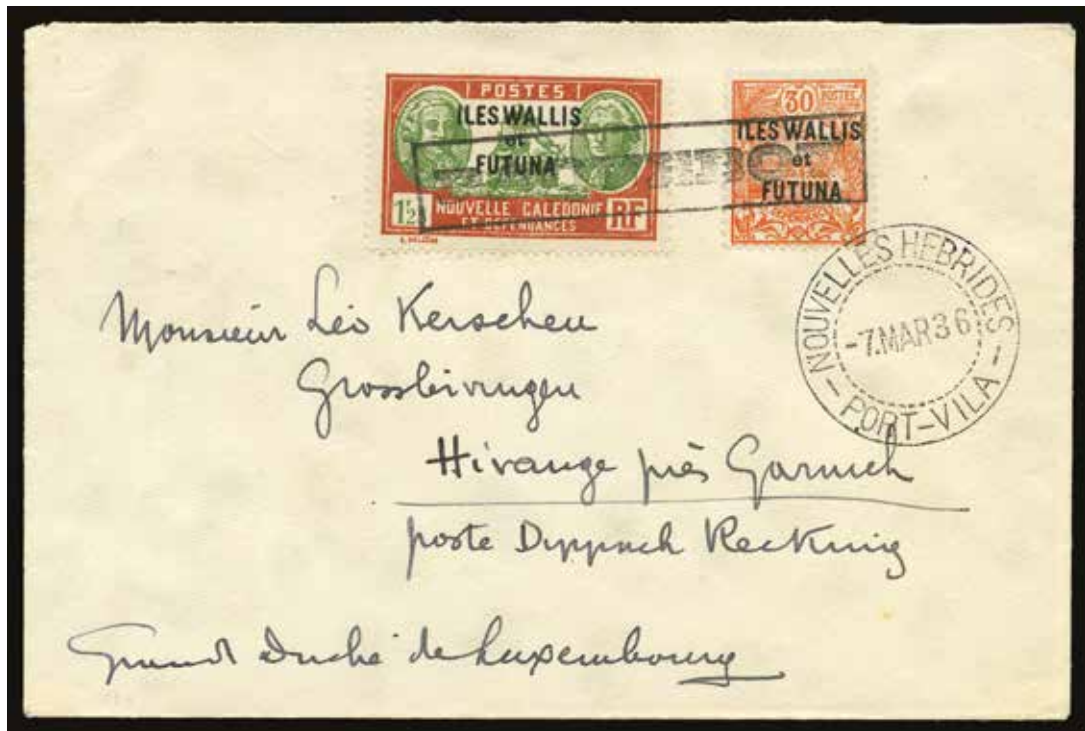 POSTES
ILES WALLIS
et
FUTUNA
1F½
NOUVELLE CALÉDONIE
ET DÉPENDANCES
RF
30
POSTES
ILES WALLIS
et
FUTUNA
NOUVELLES HEBRIDES
-7.MAR36
- PORT-VILA -
Monsieur Léo Kerschen
Hivange près Garnich
poste Dippach Recking
Grand Duché de Luxembourg